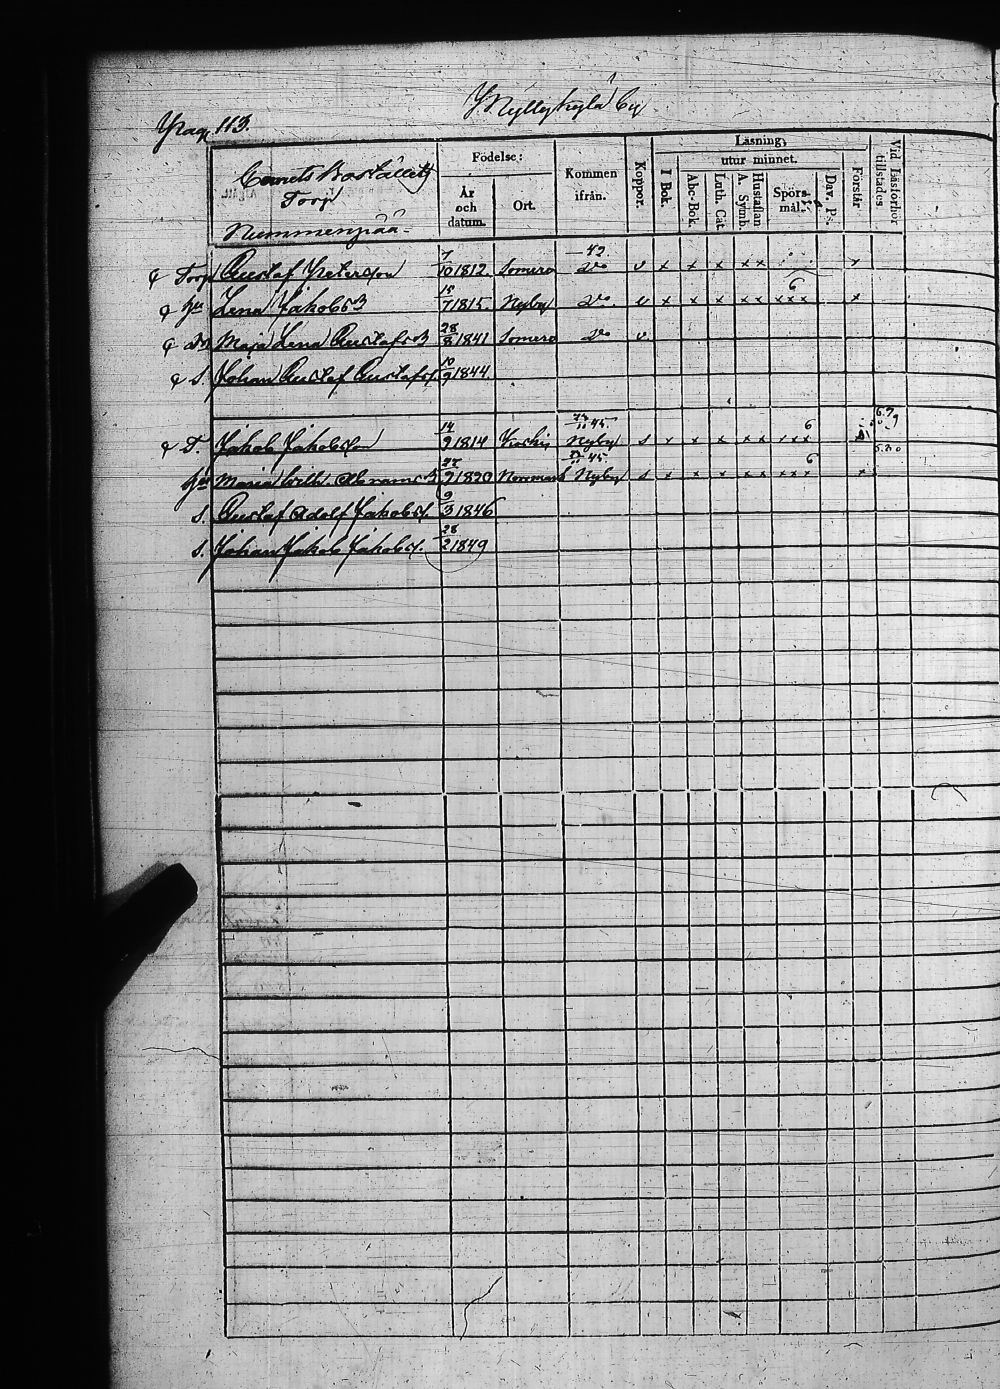 Pag 113. by
Cornets Bostället
Torp
Nummenpää
Födelse:
År och datum.
Ort.
Kommen ifrån.
Koppor.
Läsning,
utur minnet.
I Bok.
Abc-Bok.
Luth. Cat.
A. Symb.
Hustaflan
Spörs-mål.
Dav. Ps.
Förstår
Vid Läsförhör tillstädes
Torp Gustaf Peterson 7/10 1812 Somero 42 Do v x x x x x x
Hu Lena Jakobs3 15/7 1815. Nyby Do v x x x x x 6 x x x x
Dr Maja Lena Gustafs3 28/8 1841 Somero Do v
S. Johan Gustaf Gustafs. 10/9 1844
D. Jakob Jakobsson 14/9 1814 45 Nyby s x x x x x 6 x x x
Hu Maria Abrams3 1820 Nommark 45 Nyby s x x x x x 6 x x x x
s. Gustaf Adolf Jakobs. 9/3 1846
s. Johan Jakob Jakobs. 28/2 1849